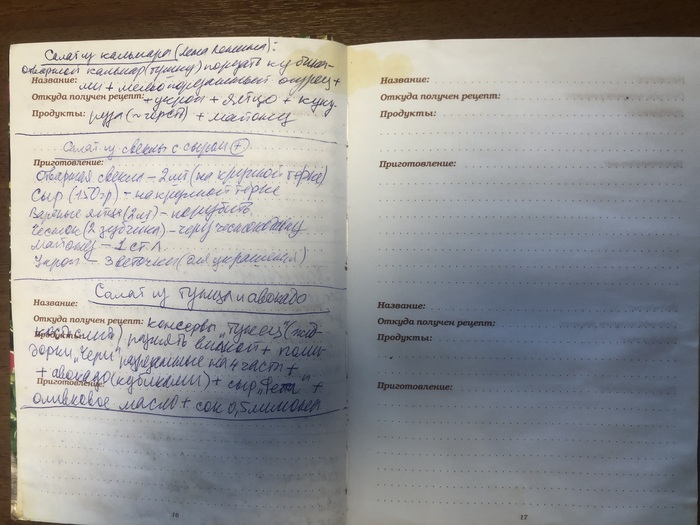 Салат из кальмара (Лена Ленина):
отварной кальмар (тушку) порезать кубика-
Название: ми + мелко порезанный огурец +
Откуда получен рецепт: + укроп + яйцо + куку-
Продукты: руза (~ горст) + майонез
Салат из свеклы с сыром (+)
Приготовление:
Отварная свекла - 2 шт (на крупной тёрке)
Сыр (150 гр) - на крупной тёрке
Варёные яйца (2 шт) - порубить
Чеснок (2 зубчика) - через чесноковку
Майонез - 1 ст л.
Укроп - 3 веточки (для украшения)
Салат из тунца и авокадо
Название:
Откуда получен рецепт: консервы "тунец" (жид-
Продукты: кость слить) размять вилкой + поми-
дорки "Чери" разрезанные на 4 части +
+ авокадо (кубиками) + сыр "Фета" +
Приготовление:
оливковое масло + сок 0,5 лимона
16
Название:
Откуда получен рецепт:
Продукты:
Приготовление:
Название:
Откуда получен рецепт:
Продукты:
Приготовление:
17